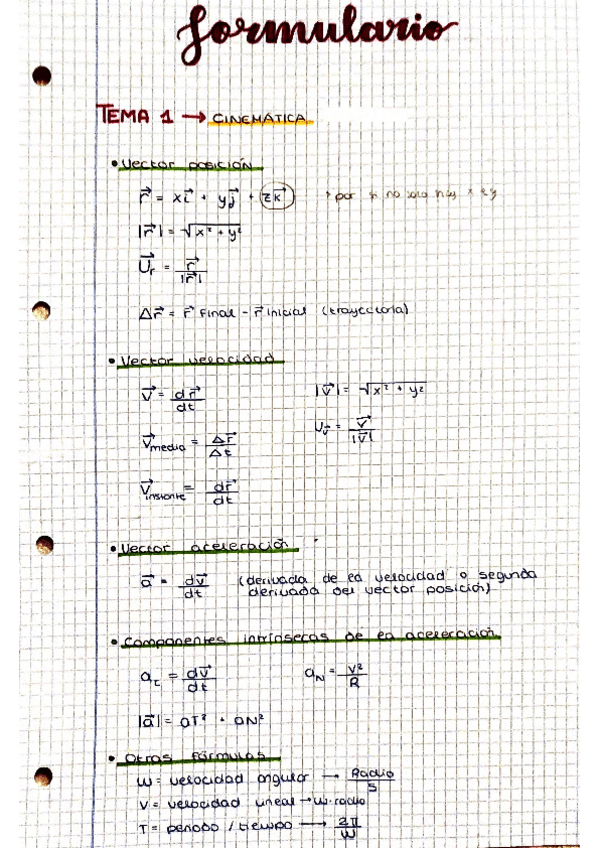 formulario
TEMA 1 → CINEMÁTICA
• Vector posición
r⃗ = xi⃗ + yj⃗ + (zk⃗) → por si no solo hay x e y
|r⃗| = √x² + y²
U⃗r = r⃗ / |r⃗|
Δr⃗ = r⃗ Final - r⃗ inicial (trayectoria)
• Vector velocidad
v⃗ = dr⃗ / dt |v⃗| = √x² + y²
v⃗media = Δr⃗ / Δt Uv⃗ = v⃗ / |v⃗|
v⃗instante = dr⃗ / dt
• Vector aceleración
a⃗ = dv⃗ / dt (derivada de la velocidad o segunda
derivada del vector posición)
• Componentes intrínsecas de la aceleración
at = dv⃗ / dt aN = v² / R
|a⃗| = aT² + aN²
• Otras fórmulas
W = velocidad angular → Radio / s
V = velocidad lineal → w · radio
T = periodo / tiempo → 2π / W